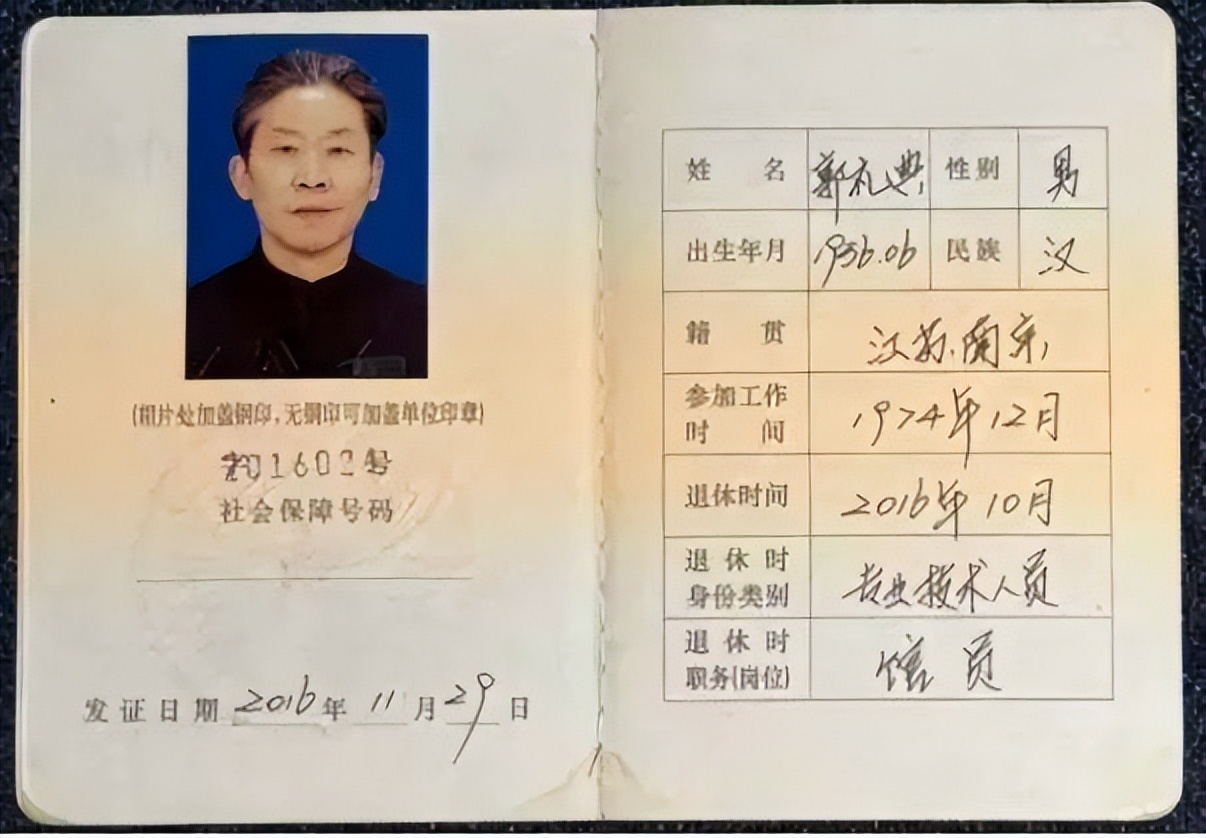 (相片处加盖钢印,无钢印可加盖单位印章)
2016024号
社会保障号码
发证日期 2016 年 11 月 29 日
姓名 郭礼典 性别 男
出生年月 1956.06 民族 汉
籍贯 江苏.南京
参加工作
时间 1974年12月
退休时间 2016年10月
退休时
身份类别 专业技术人员
退休时
职务(岗位) 馆员